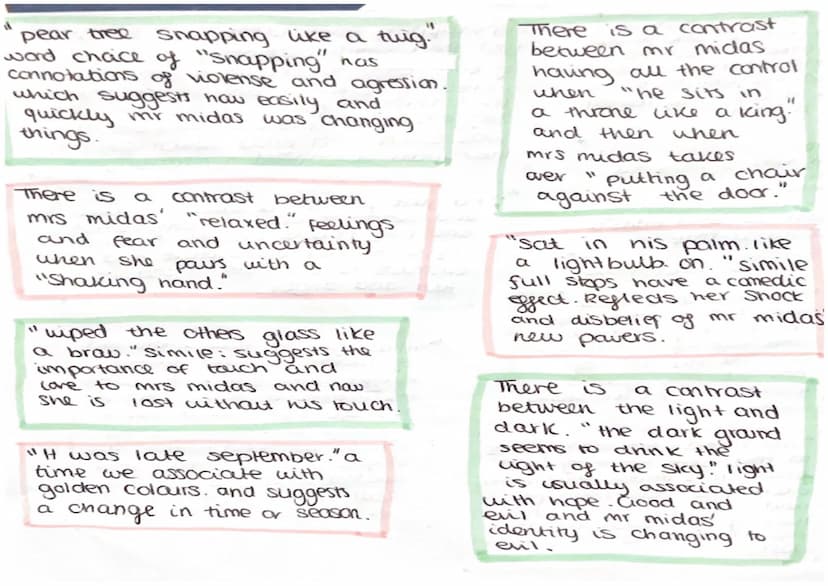 "pear tree snapping like a twig."
word choice of "snapping" has
connotations of violense and agression.
which suggests how easily and
quickly mr midas was changing
things.
There is a contrast between
mrs midas' "relaxed." feelings
and fear and uncertainty
when she pours with a
"Shaking hand."
"wiped the others glass like
a brow." simile: suggests the
importance of touch and
love to mrs midas and how
she is lost without his touch.
"It was late september." a
time we associate with
golden colours. and suggests
a change in time or season.
There is a contrast
between mr midas
having all the control
when "he sits in
a throne like a king."
and then when
mrs midas takes
over "putting a chair
against the door."
"Sat in his palm. like
a lightbulb. on." simile
full stops have a comedic
effect. Reflects her shock
and disbelief of mr midas'
new powers.
There is a contrast
between the light and
dark. "the dark ground
seems to drink the
light of the sky." light
is usually associated
with hope. Good and
evil and mr midas'
identity is changing to
evil.